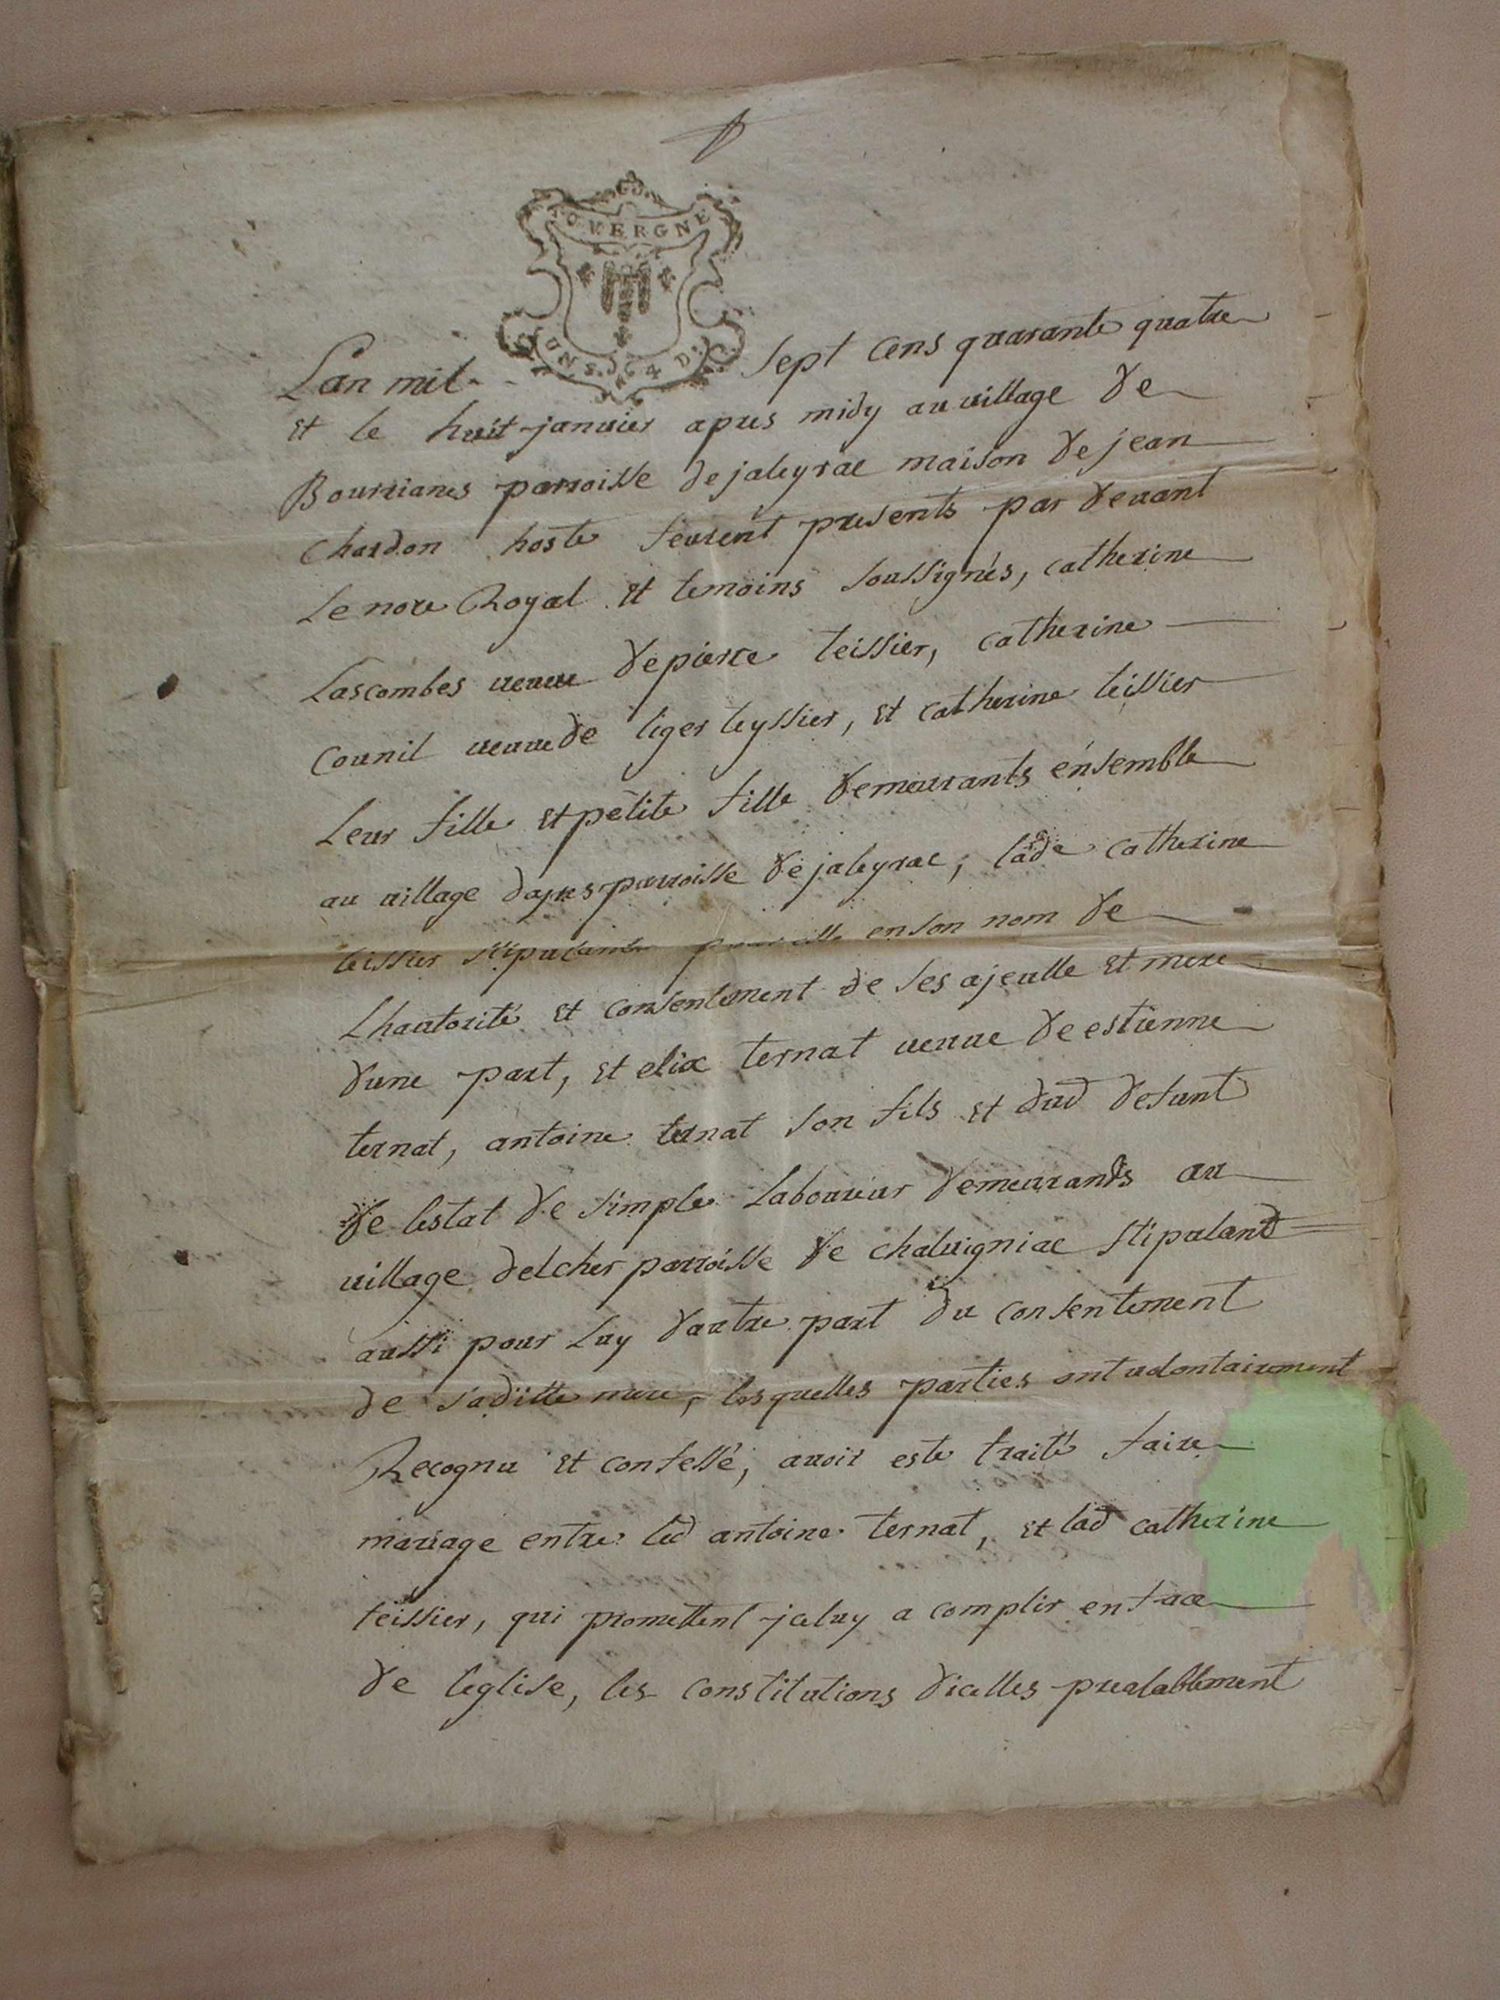 AUVERGNE
Lan mil sept cens quarante quatre
et le huit janvier apres midy au village de
Bourrianes parroisse de jaleyrac maison de jean
Chardon hoste feurent presents par devant
Le nore Royal et temoins soussignés, catherine
Lascombes veuve de pierre teissier, catherine
Counil veuve de liger teyssier, et catherine teissier
Leur fille et petite fille demeurants énsemble
au village dayres parroisse de jaleyrac, lade catherine
teissier stipulante pour elle en son nom de
Lhautorité et consentement de ses ajeulle et mere
dune part, et elix ternat veuve de estienne
ternat, antoine ternat son fils et dud defunt
de lestat de simple Laboureur demeurants au
village delcher parroisse de chalvigniac stipulant
aussi pour Luy dautre part du consentement
de saditte mere, lesquelles parties ont volontairement
Recognu et confessé, avoir este traité faire
mariage entre led antoine ternat, et lad catherine
teissier, qui promettent jceluy acomplir en face
de leglise, les constitutions dicelles prealablement